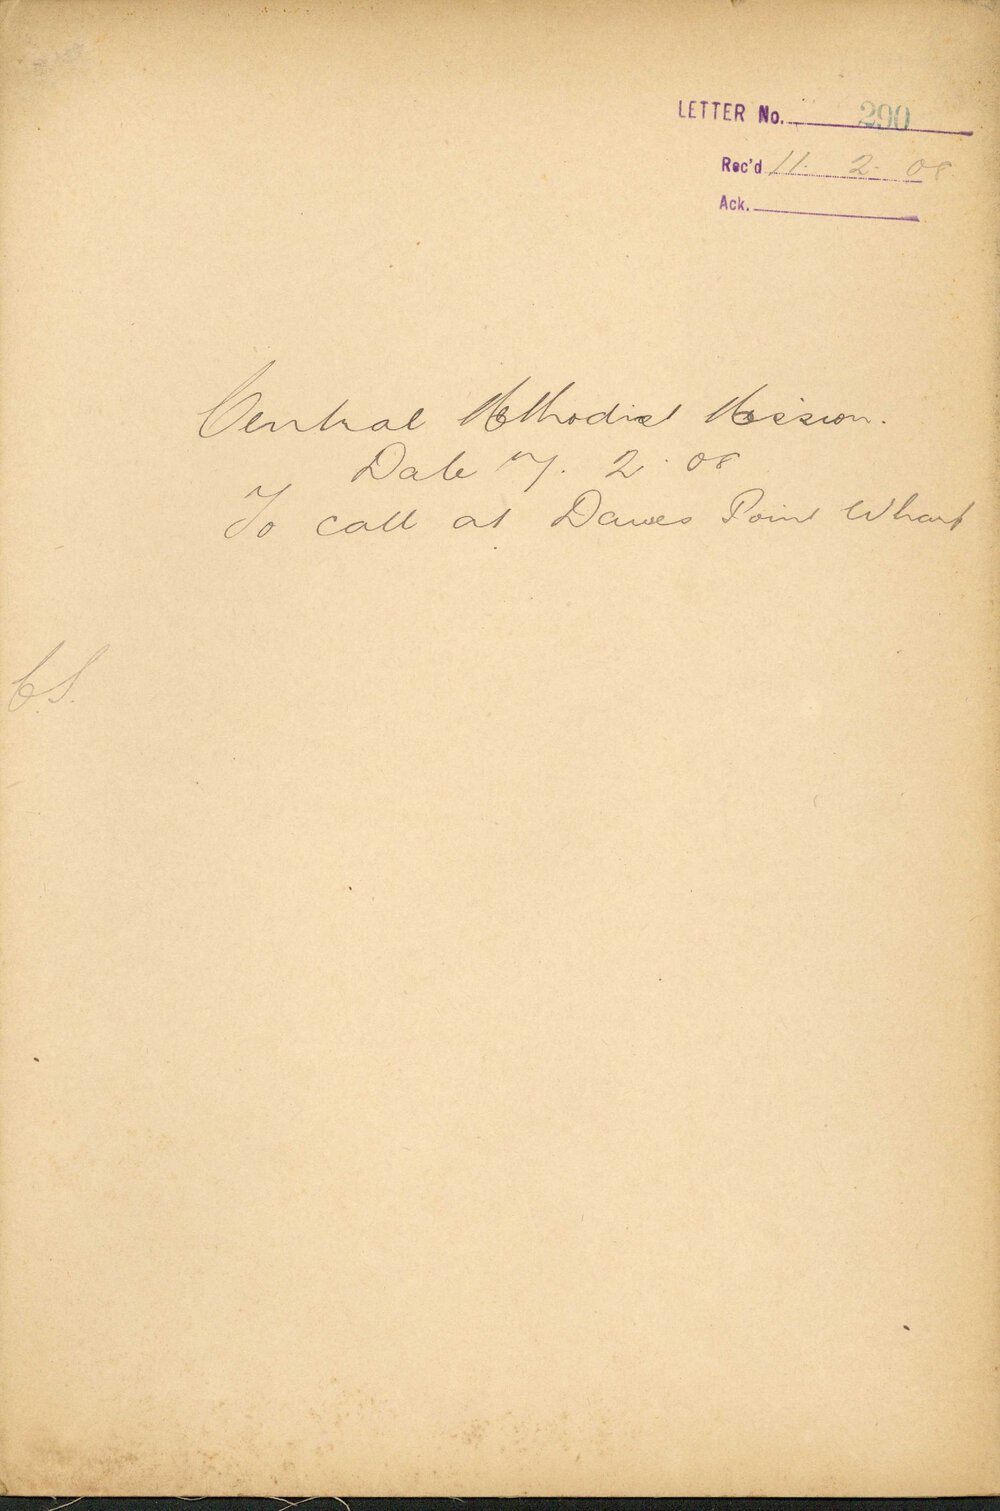 LETTER No. 290
Rec'd 11. 2. 08.
Ack.
Central Methodist Mission.
Date 7. 2. 08
To call at Dawes Point Wharf
C.S.